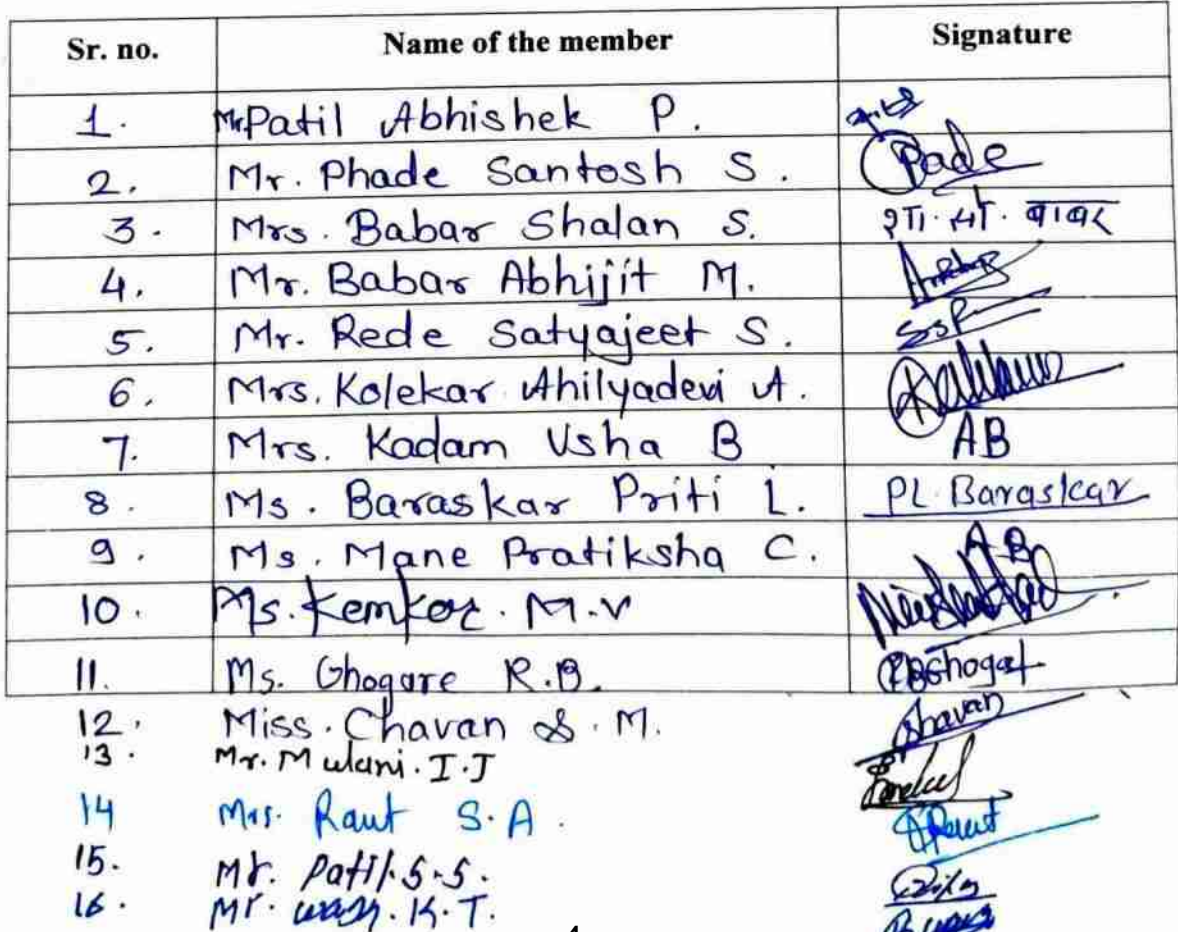 Sr. no. Name of the member Signature
1. Mr Patil Abhishek P.
2. Mr. Phade Santosh S. Pade
3. Mrs. Babar Shalan S. शा. सो. बाबर
4. Mr. Babar Abhijit M.
5. Mr. Rede Satyajeet S. SSR
6. Mrs. Kolekar Ahilyadevi A.
7. Mrs. Kadam Usha B AB
8. Ms. Baraskar Priti L. PL. Baraskar
9. Ms. Mane Pratiksha C. AB
10. Ms. Kemkar. M.V
11. Ms. Ghogare R.B. RBGhogare
12. Miss. Chavan S. M. Chavan
13. Mr. Mulani. I.J
14 Mrs. Raut S.A. Raut
15. Mr. Patil. S.S.
16. Mr. K.T.